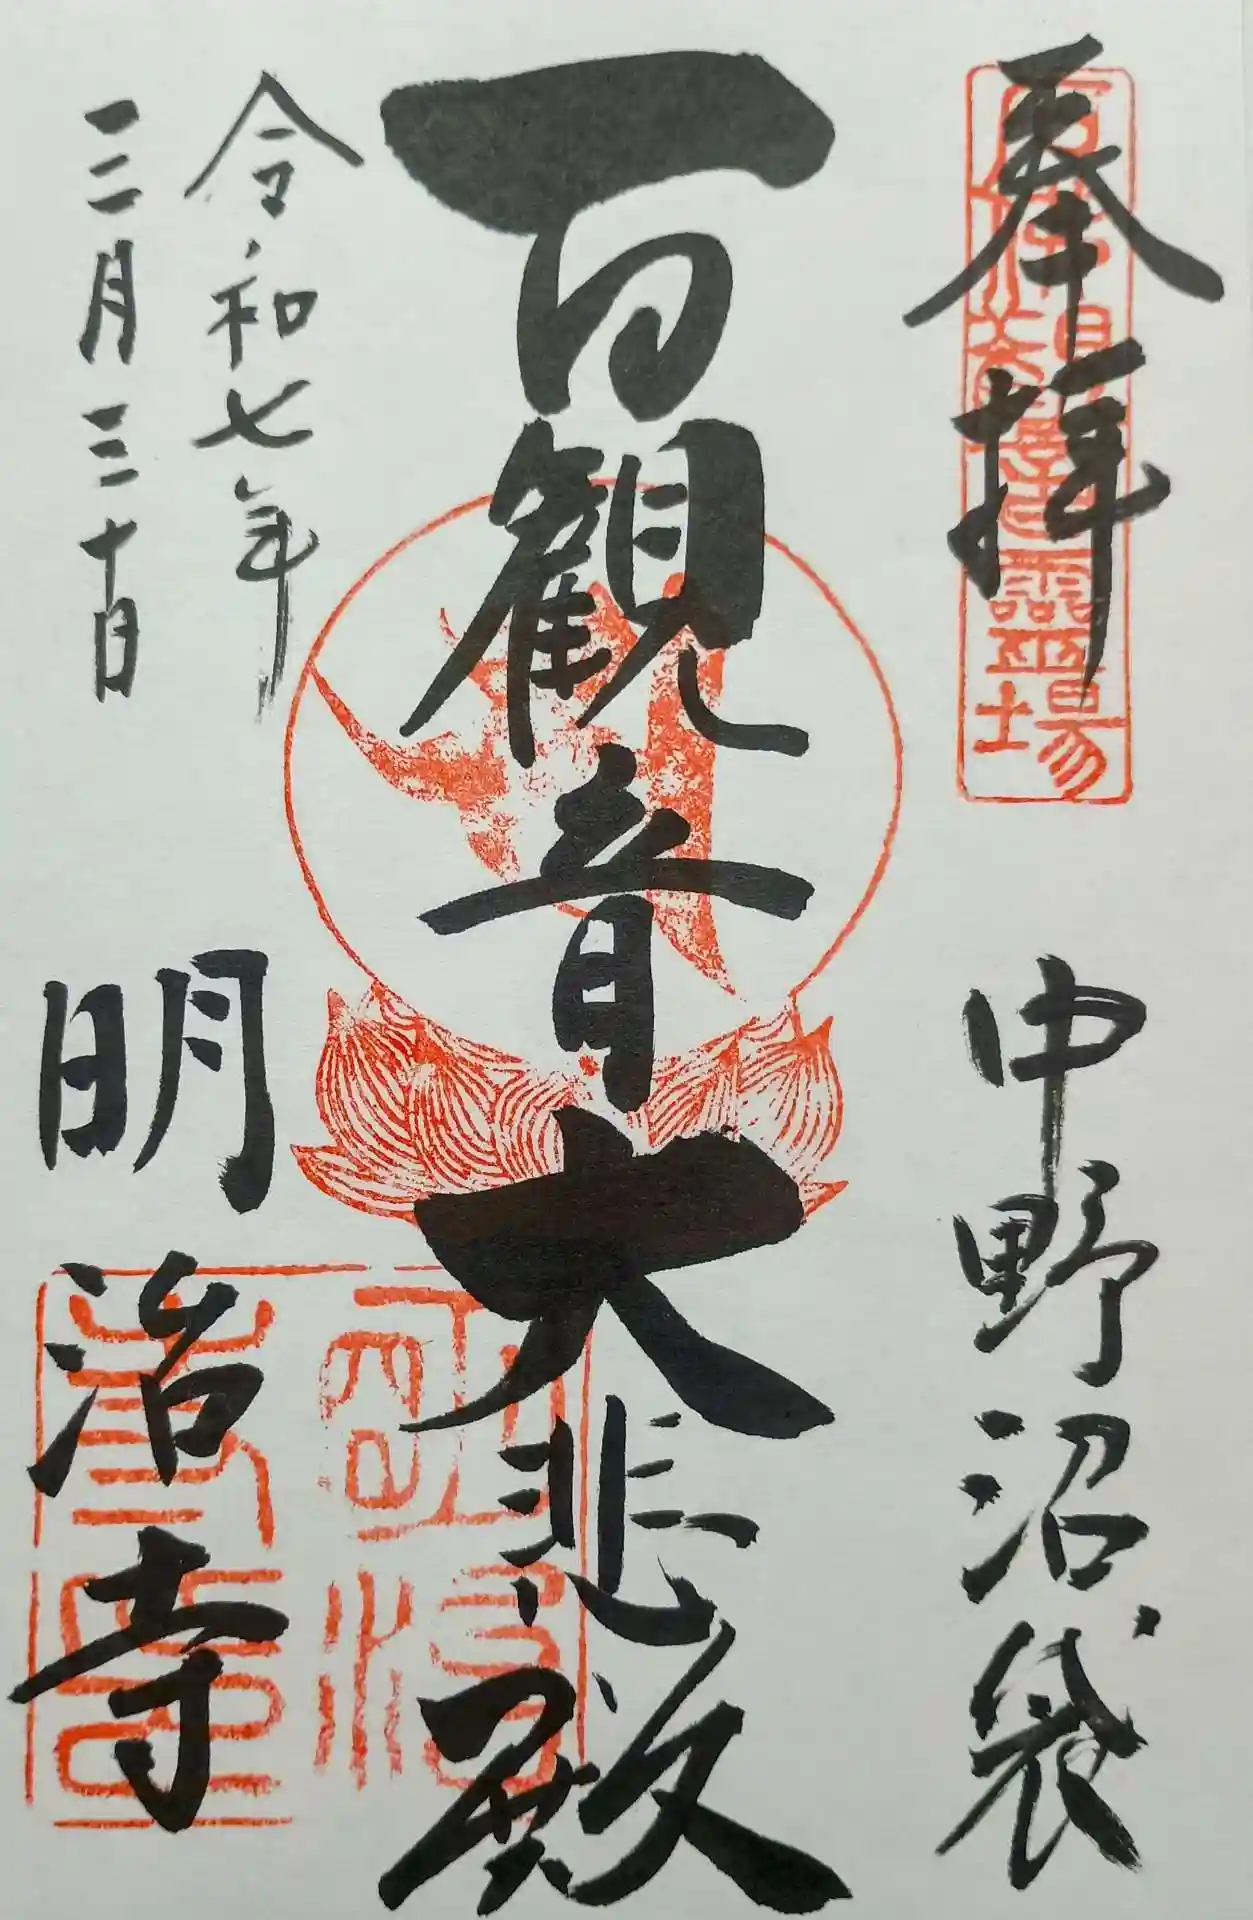 奉拝
中野沼袋
百観音大悲殿
令和七年
三月三十日
明治寺
明治寺印